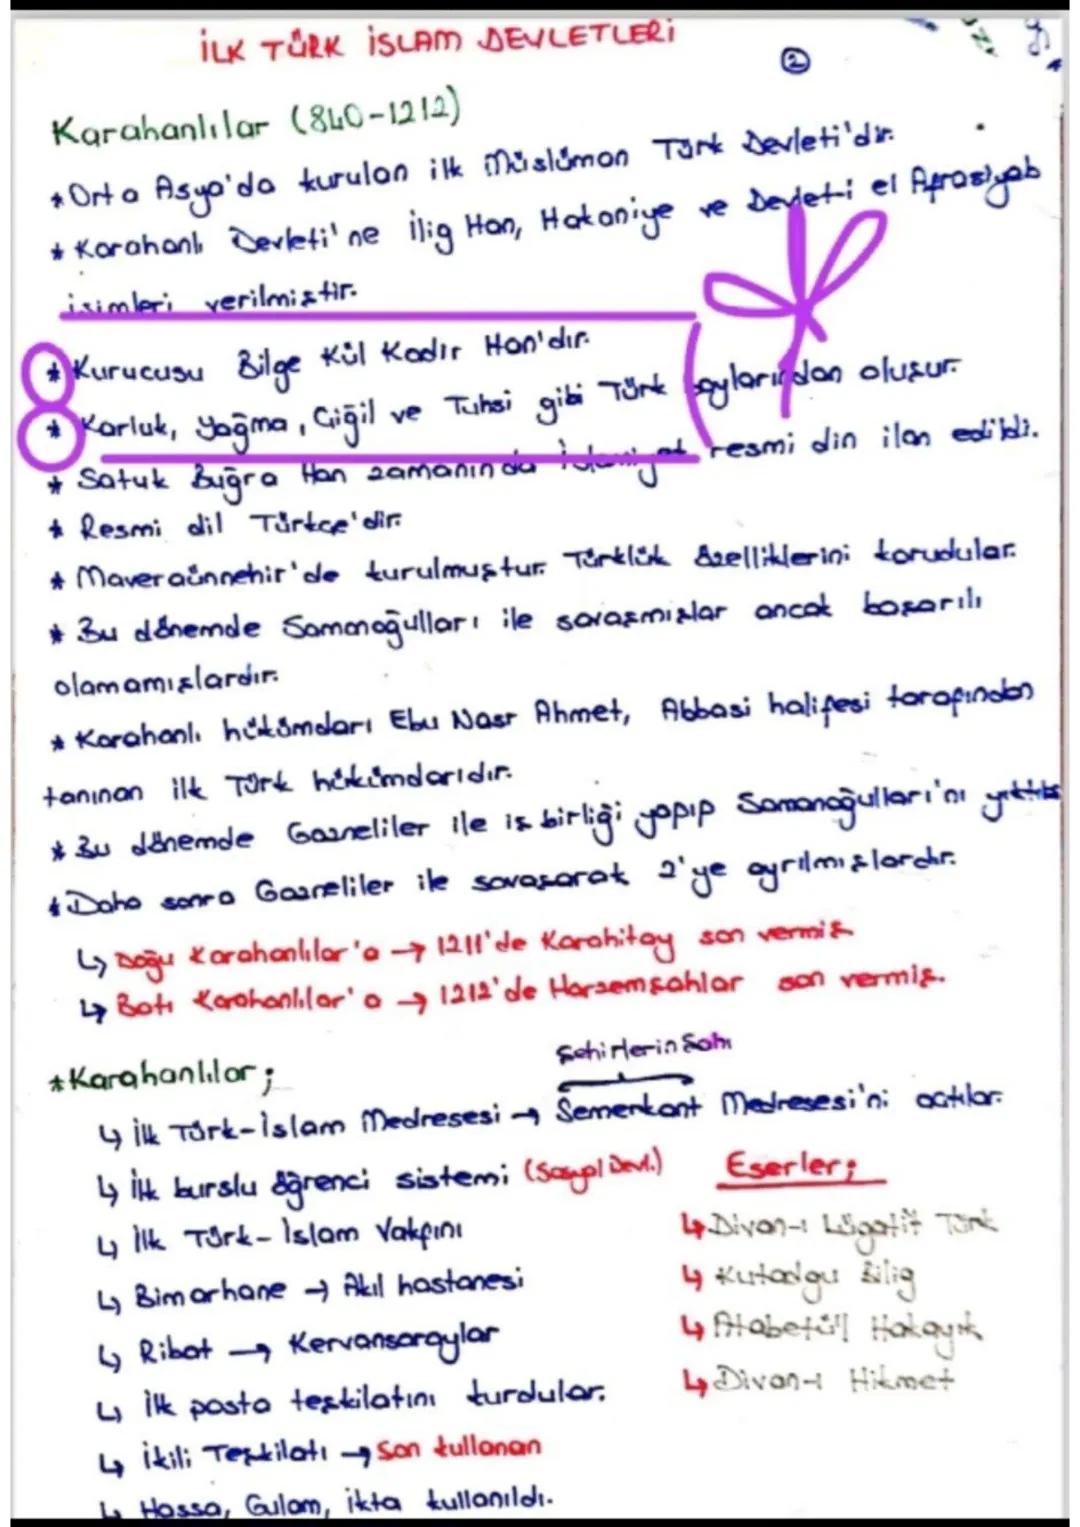 İLK TÜRK İSLAM DEVLETLERİ
2
Karahanlılar (840-1212)
* Orta Asya'da kurulan ilk Müslüman Türk Devleti'dir.
* Karahanlı Devleti'ne İlig Han, Hakaniye ve Devlet-i el Afrasiyab
isimleri verilmiştir.
* Kurucusu Bilge Kül Kadır Han'dır.
* Karluk, Yağma, Çiğil ve Tuhsi gibi Türk boylarından oluşur.
* Satuk Buğra Han zamanında İslamiyet resmi din ilan edildi.
* Resmi dil Türkçe'dir.
* Maveraünnehir'de kurulmuştur. Türklük özelliklerini korudular.
* Bu dönemde Samanoğulları ile savaşmışlar ancak başarılı
olamamışlardır.
* Karahanlı hükümdarı Ebu Nasr Ahmet, Abbasi halifesi tarafından
tanınan ilk Türk hükümdarıdır.
* Bu dönemde Gazneliler ile iş birliği yapıp Samanoğulları'nı
* Daha sonra Gazneliler ile savaşarak 2'ye ayrılmışlardır.
↳ Doğu Karahanlılar'a → 1211'de Karahitay son vermiş
↳ Batı Karahanlılar'a → 1212'de Harzemşahlar son vermiş.
Şehirlerin Şahı
* Karahanlılar;
↳ İlk Türk-İslam Medresesi → Semerkant Medresesi'ni açtılar.
↳ İlk burslu öğrenci sistemi (Sosyal Devl.)
↳ İlk Türk-İslam Vakfını
↳ Bimarhane → Akıl hastanesi
↳ Ribat → Kervansaraylar
↳ İlk posta teşkilatını kurdular.
↳ İkili Teşkilatı → Son kullanan
↳ Hassa, Gulam, ikta kullanıldı.
Eserler;
↳ Divan-ı Lügatit Türk
↳ Kutadgu Bilig
↳ Atabetül Hakayık
↳ Divan-ı Hikmet